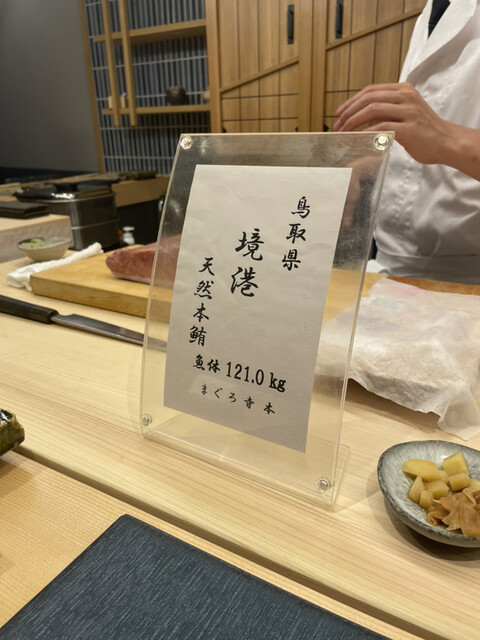 鳥取県
境港
天然本鮪
魚体 121.0kg
まぐろ寺本